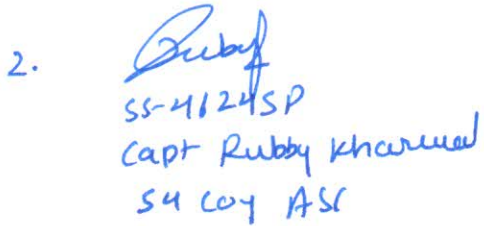 2. Ruby
SS-41245P
Capt Rubby Kharwal
54 Coy ASC